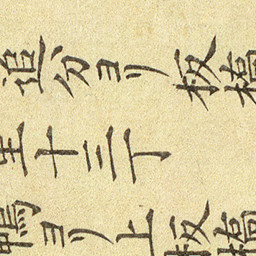 追分ヨリ板橋
里十三丁
鴨ヨリ上板橋